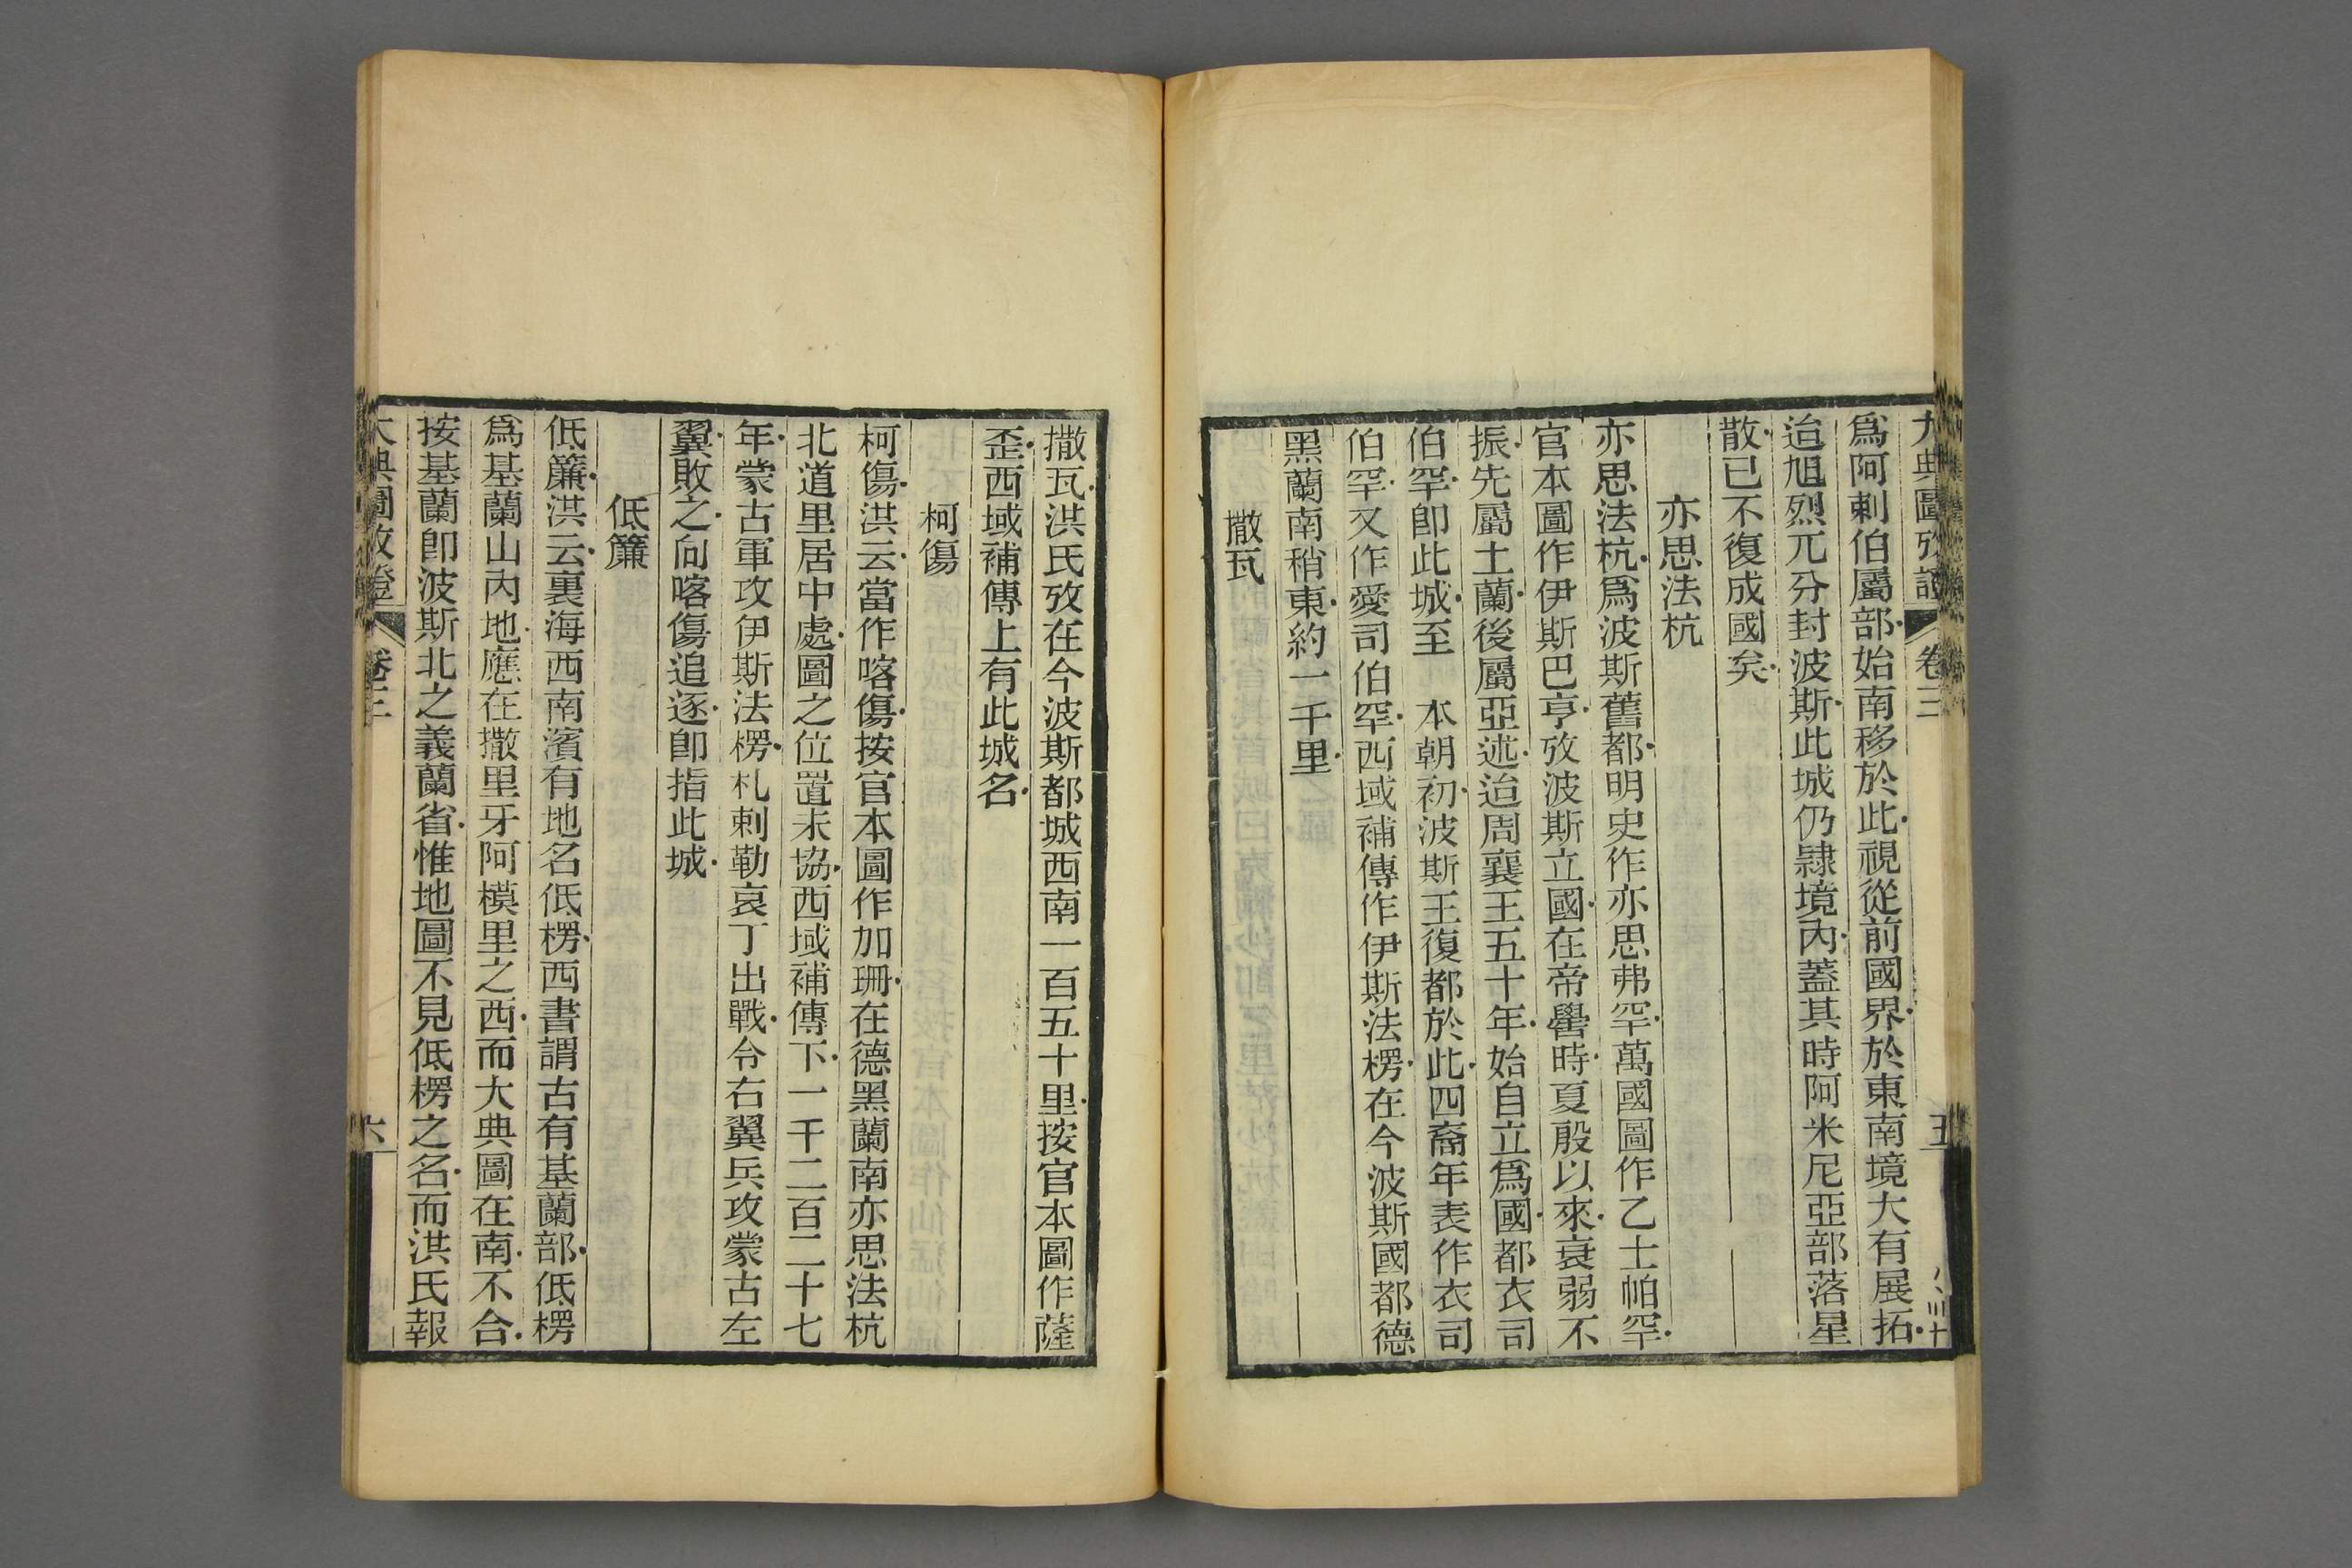 大典圖攷證 卷三 五
爲阿剌伯屬部始南移於此視從前國界於東南境大有展拓
迨旭烈兀分封波斯此城仍隸境內蓋其時阿米尼亞部落星
散已不復成國矣
亦思法杭
亦思法杭爲波斯舊都明史作亦思弗罕萬國圖作乙士帕罕
官本圖作伊斯巴亨攷波斯立國在帝嚳時夏殷以來衰弱不
振先屬土蘭後屬亞述迨周襄王五十年始自立爲國都衣司
伯罕卽此城至 本朝初波斯王復都於此四裔年表作衣司
伯罕又作愛司伯罕西域補傳作伊斯法楞在今波斯國都德
黑蘭南稍東約一千里
撒瓦
撒瓦洪氏攷在今波斯都城西南一百五十里按官本圖作薩
歪西域補傳上有此城名
柯傷
柯傷洪云當作喀傷按官本圖作加珊在德黑蘭南亦思法杭
北道里居中處圖之位置未協西域補傳下一千二百二十七
年蒙古軍攻伊斯法楞札剌勒哀丁出戰令右翼兵攻蒙古左
翼敗之向喀傷追逐卽指此城
低簾
低簾洪云裏海西南濱有地名低楞西書謂古有基蘭部低楞
爲基蘭山內地應在撒里牙阿模里之西而大典圖在南不合
按基蘭卽波斯北之義蘭省惟地圖不見低楞之名而洪氏報
大典圖攷證 卷三 六